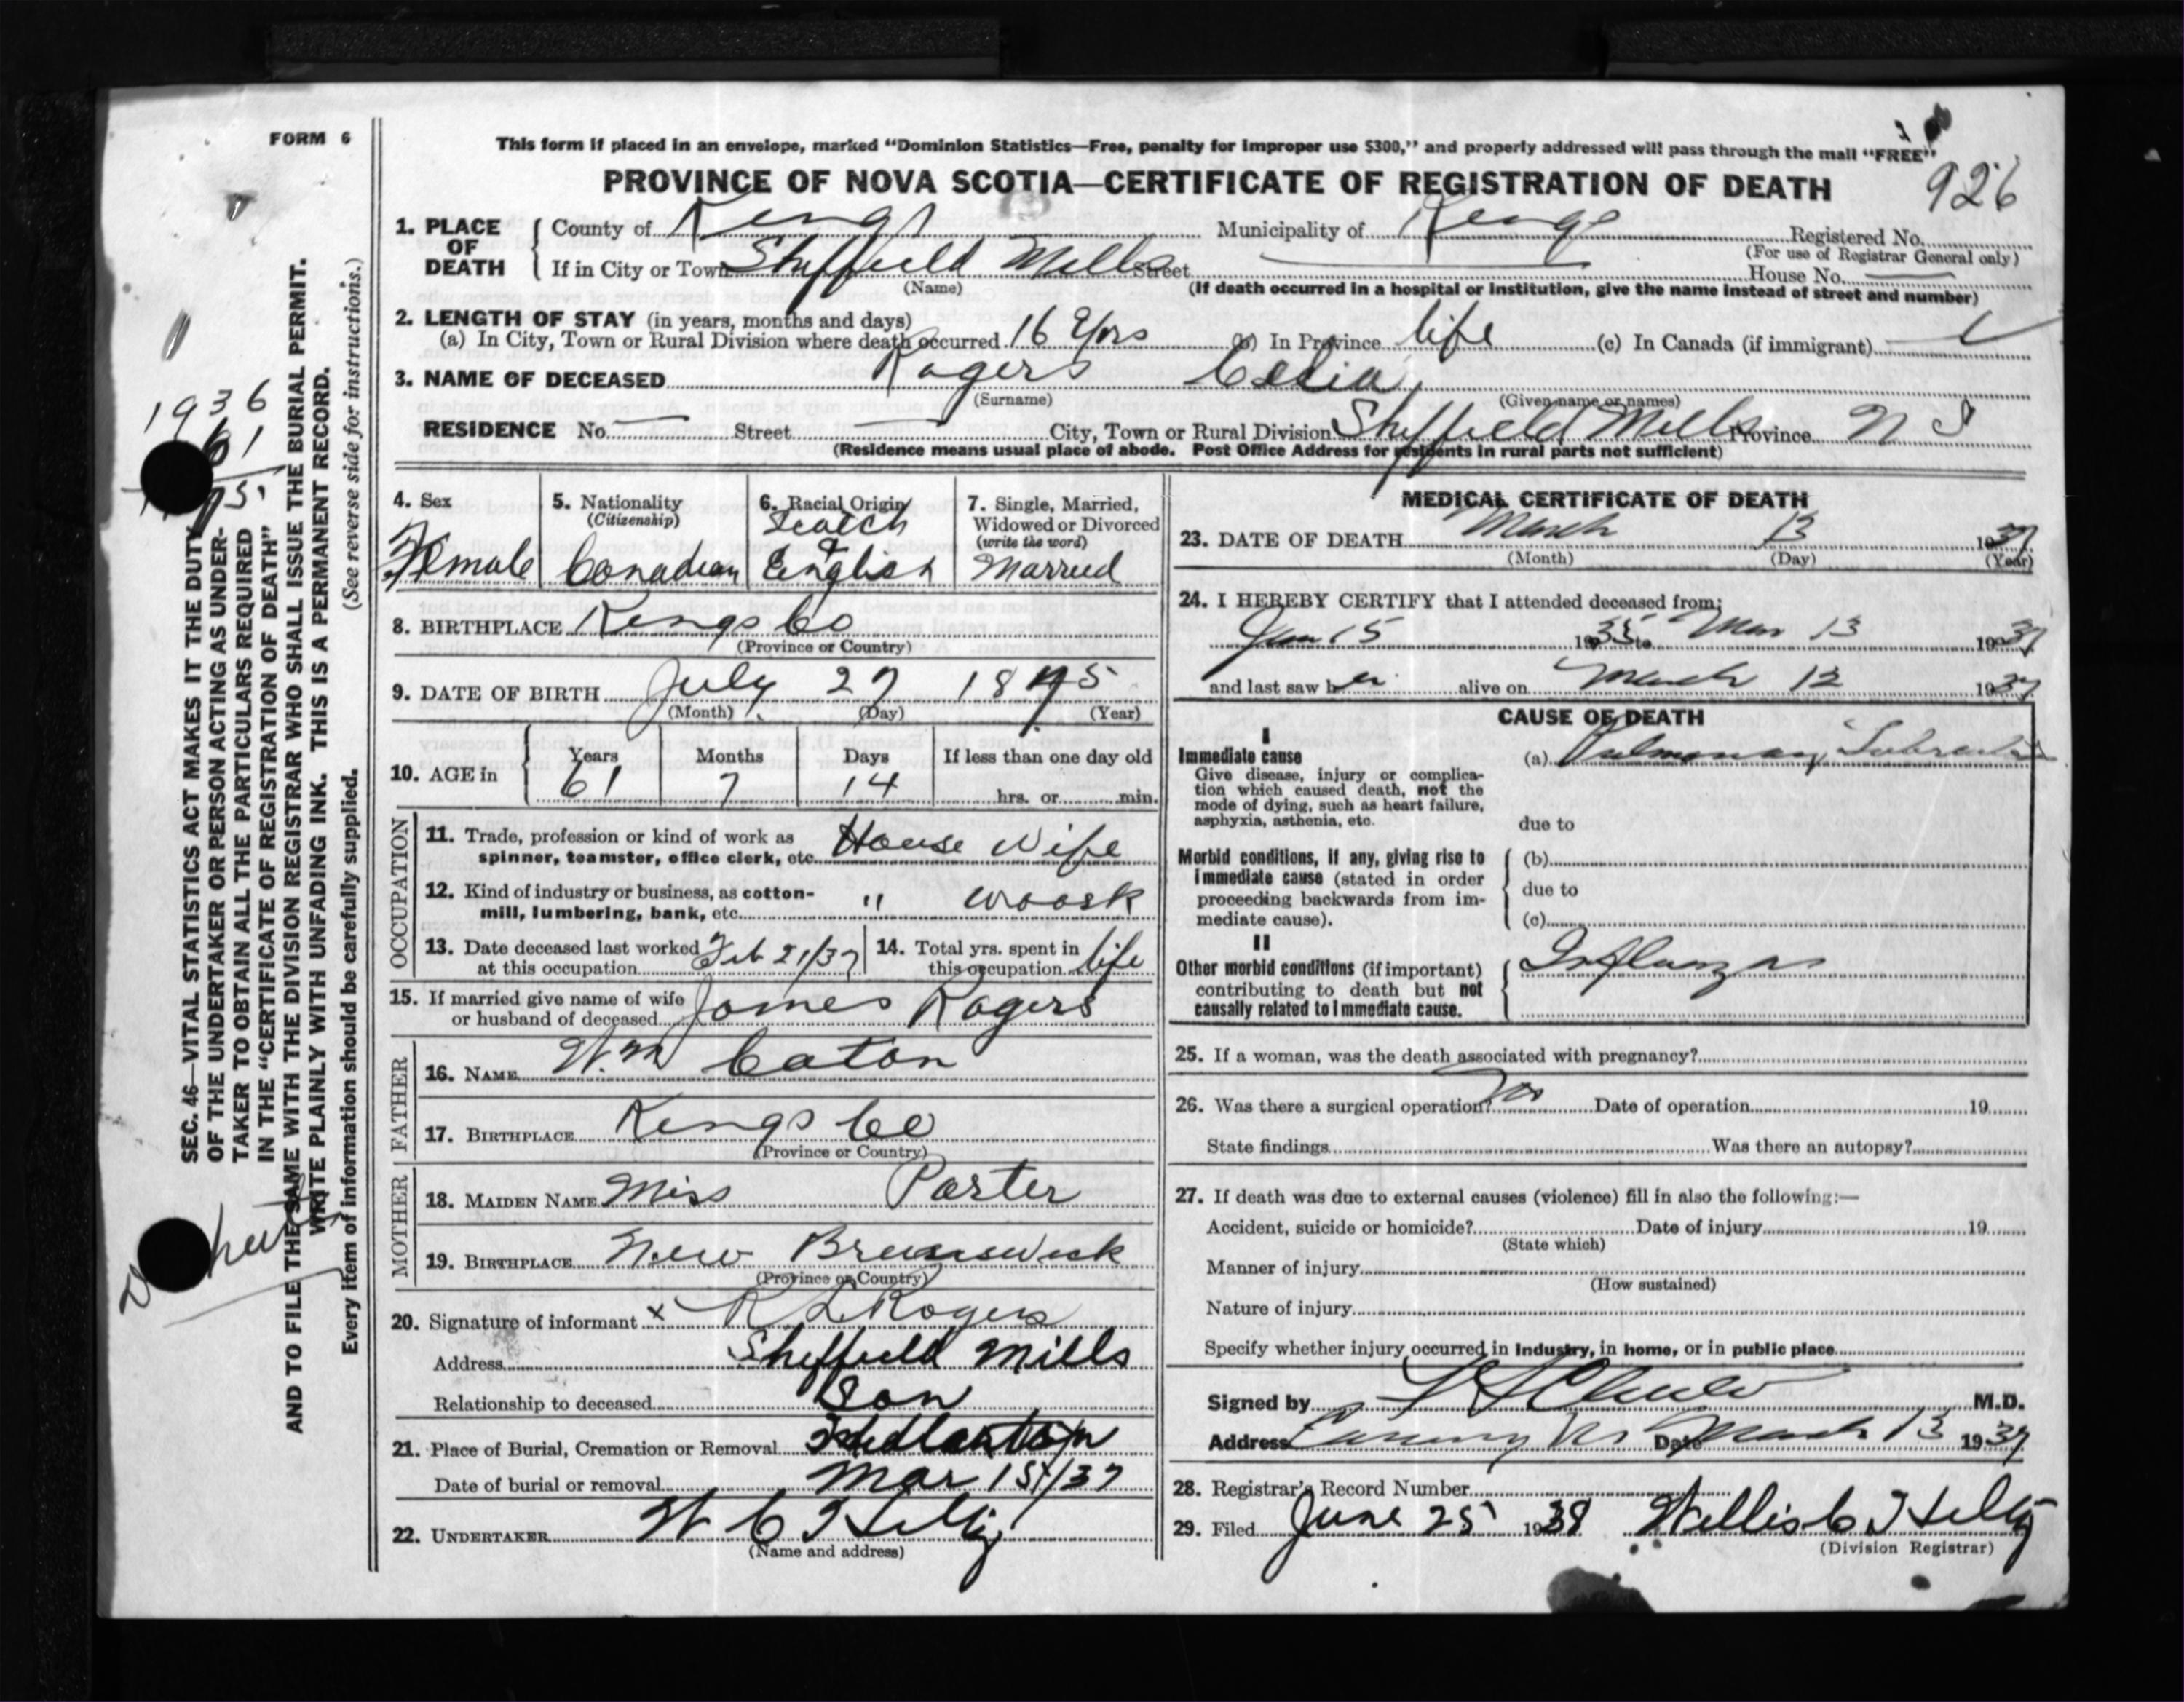 FORM 6
This form if placed in an envelope, marked “Dominion Statistics—Free, penalty for improper use $300,” and properly addressed will pass through the mail “FREE”
PROVINCE OF NOVA SCOTIA—CERTIFICATE OF REGISTRATION OF DEATH
926
1. PLACE OF DEATH
County of Kings Municipality of Kings Registered No.
(For use of Registrar General only)
If in City or Town Sheffield Mills Street House No.
(Name) (If death occurred in a hospital or institution, give the name instead of street and number)
2. LENGTH OF STAY (in years, months and days)
(a) In City, Town or Rural Division where death occurred 16 Yrs (b) In Province life (c) In Canada (if immigrant)
3. NAME OF DECEASED Rogers Celia
(Surname) (Given name or names)
RESIDENCE No. Street City, Town or Rural Division Sheffield Mills Province N S
(Residence means usual place of abode. Post Office Address for residents in rural parts not sufficient)
4. Sex
Female
5. Nationality
(Citizenship)
Canadian
6. Racial Origin
Scotch
&
English
7. Single, Married,
Widowed or Divorced
(write the word)
Married
8. BIRTHPLACE Kings Co
(Province or Country)
9. DATE OF BIRTH July 27 1875
(Month) (Day) (Year)
10. AGE in
Years Months Days If less than one day old
61 7 14 hrs. or min.
OCCUPATION
11. Trade, profession or kind of work as
spinner, teamster, office clerk, etc. House Wife
12. Kind of industry or business, as cotton-
mill, lumbering, bank, etc. " woork
13. Date deceased last worked
at this occupation Feb 21/37
14. Total yrs. spent in
this occupation life
15. If married give name of wife
or husband of deceased James Rogers
FATHER
16. NAME Wm Eaton
17. BIRTHPLACE Kings Co
(Province or Country)
MOTHER
18. MAIDEN NAME Miss Porter
19. BIRTHPLACE New Brunswick
(Province or Country)
20. Signature of informant x R L Rogers
Address Sheffield Mills
Relationship to deceased Son
21. Place of Burial, Cremation or Removal
Date of burial or removal Mar 15/37
22. UNDERTAKER W C
(Name and address)
MEDICAL CERTIFICATE OF DEATH
23. DATE OF DEATH March 13 1937
(Month) (Day) (Year)
24. I HEREBY CERTIFY that I attended deceased from;
Jan 15 1935 to Mar 13 1937
and last saw her alive on March 12 1937
CAUSE OF DEATH
I
Immediate cause
Give disease, injury or complica-
tion which caused death, not the
mode of dying, such as heart failure,
asphyxia, asthenia, etc.
(a) Pulmonary
due to
Morbid conditions, if any, giving rise to
immediate cause (stated in order
proceeding backwards from im-
mediate cause).
(b)
due to
(c)
II
Other morbid conditions (if important)
contributing to death but not
causally related to immediate cause.
Influenza
25. If a woman, was the death associated with pregnancy?
26. Was there a surgical operation? No Date of operation 19
State findings Was there an autopsy?
27. If death was due to external causes (violence) fill in also the following:—
Accident, suicide or homicide? Date of injury 19
(State which)
Manner of injury
(How sustained)
Nature of injury
Specify whether injury occurred in Industry, in home, or in public place
Signed by M.D.
Address Canning NS Date March 13 1937
28. Registrar's Record Number
29. Filed June 25 1938 Willis C
(Division Registrar)
SEC. 46—VITAL STATISTICS ACT MAKES IT THE DUTY
OF THE UNDERTAKER OR PERSON ACTING AS UNDER-
TAKER TO OBTAIN ALL THE PARTICULARS REQUIRED
IN THE “CERTIFICATE OF REGISTRATION OF DEATH”
AND TO FILE THE SAME WITH THE DIVISION REGISTRAR WHO SHALL ISSUE THE BURIAL PERMIT.
WRITE PLAINLY WITH UNFADING INK. THIS IS A PERMANENT RECORD.
Every item of information should be carefully supplied. (See reverse side for instructions.)
1936
61
75